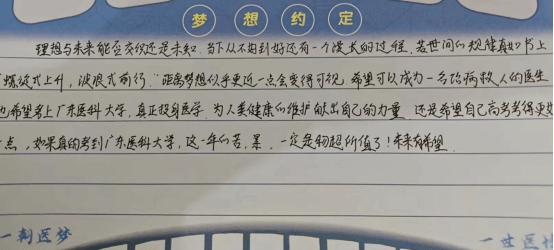 梦想约定
理想与未来能否交织还是未知。当下从不如到好还有一个漫长的过程，若世间的规律真如书上
"螺旋式上升，波浪式前行。"距离梦想似乎更近一点会变得可视，希望可以成为一名治病救人的医生
也希望考上广东医科大学，真正投身医学，为人类健康的维护献出自己的力量，还是希望自己高考考得更好
一点，如果真的考到广东医科大学，这一年的苦、累，一定是物超所值了！未来有希望
一朝医梦
一世医情